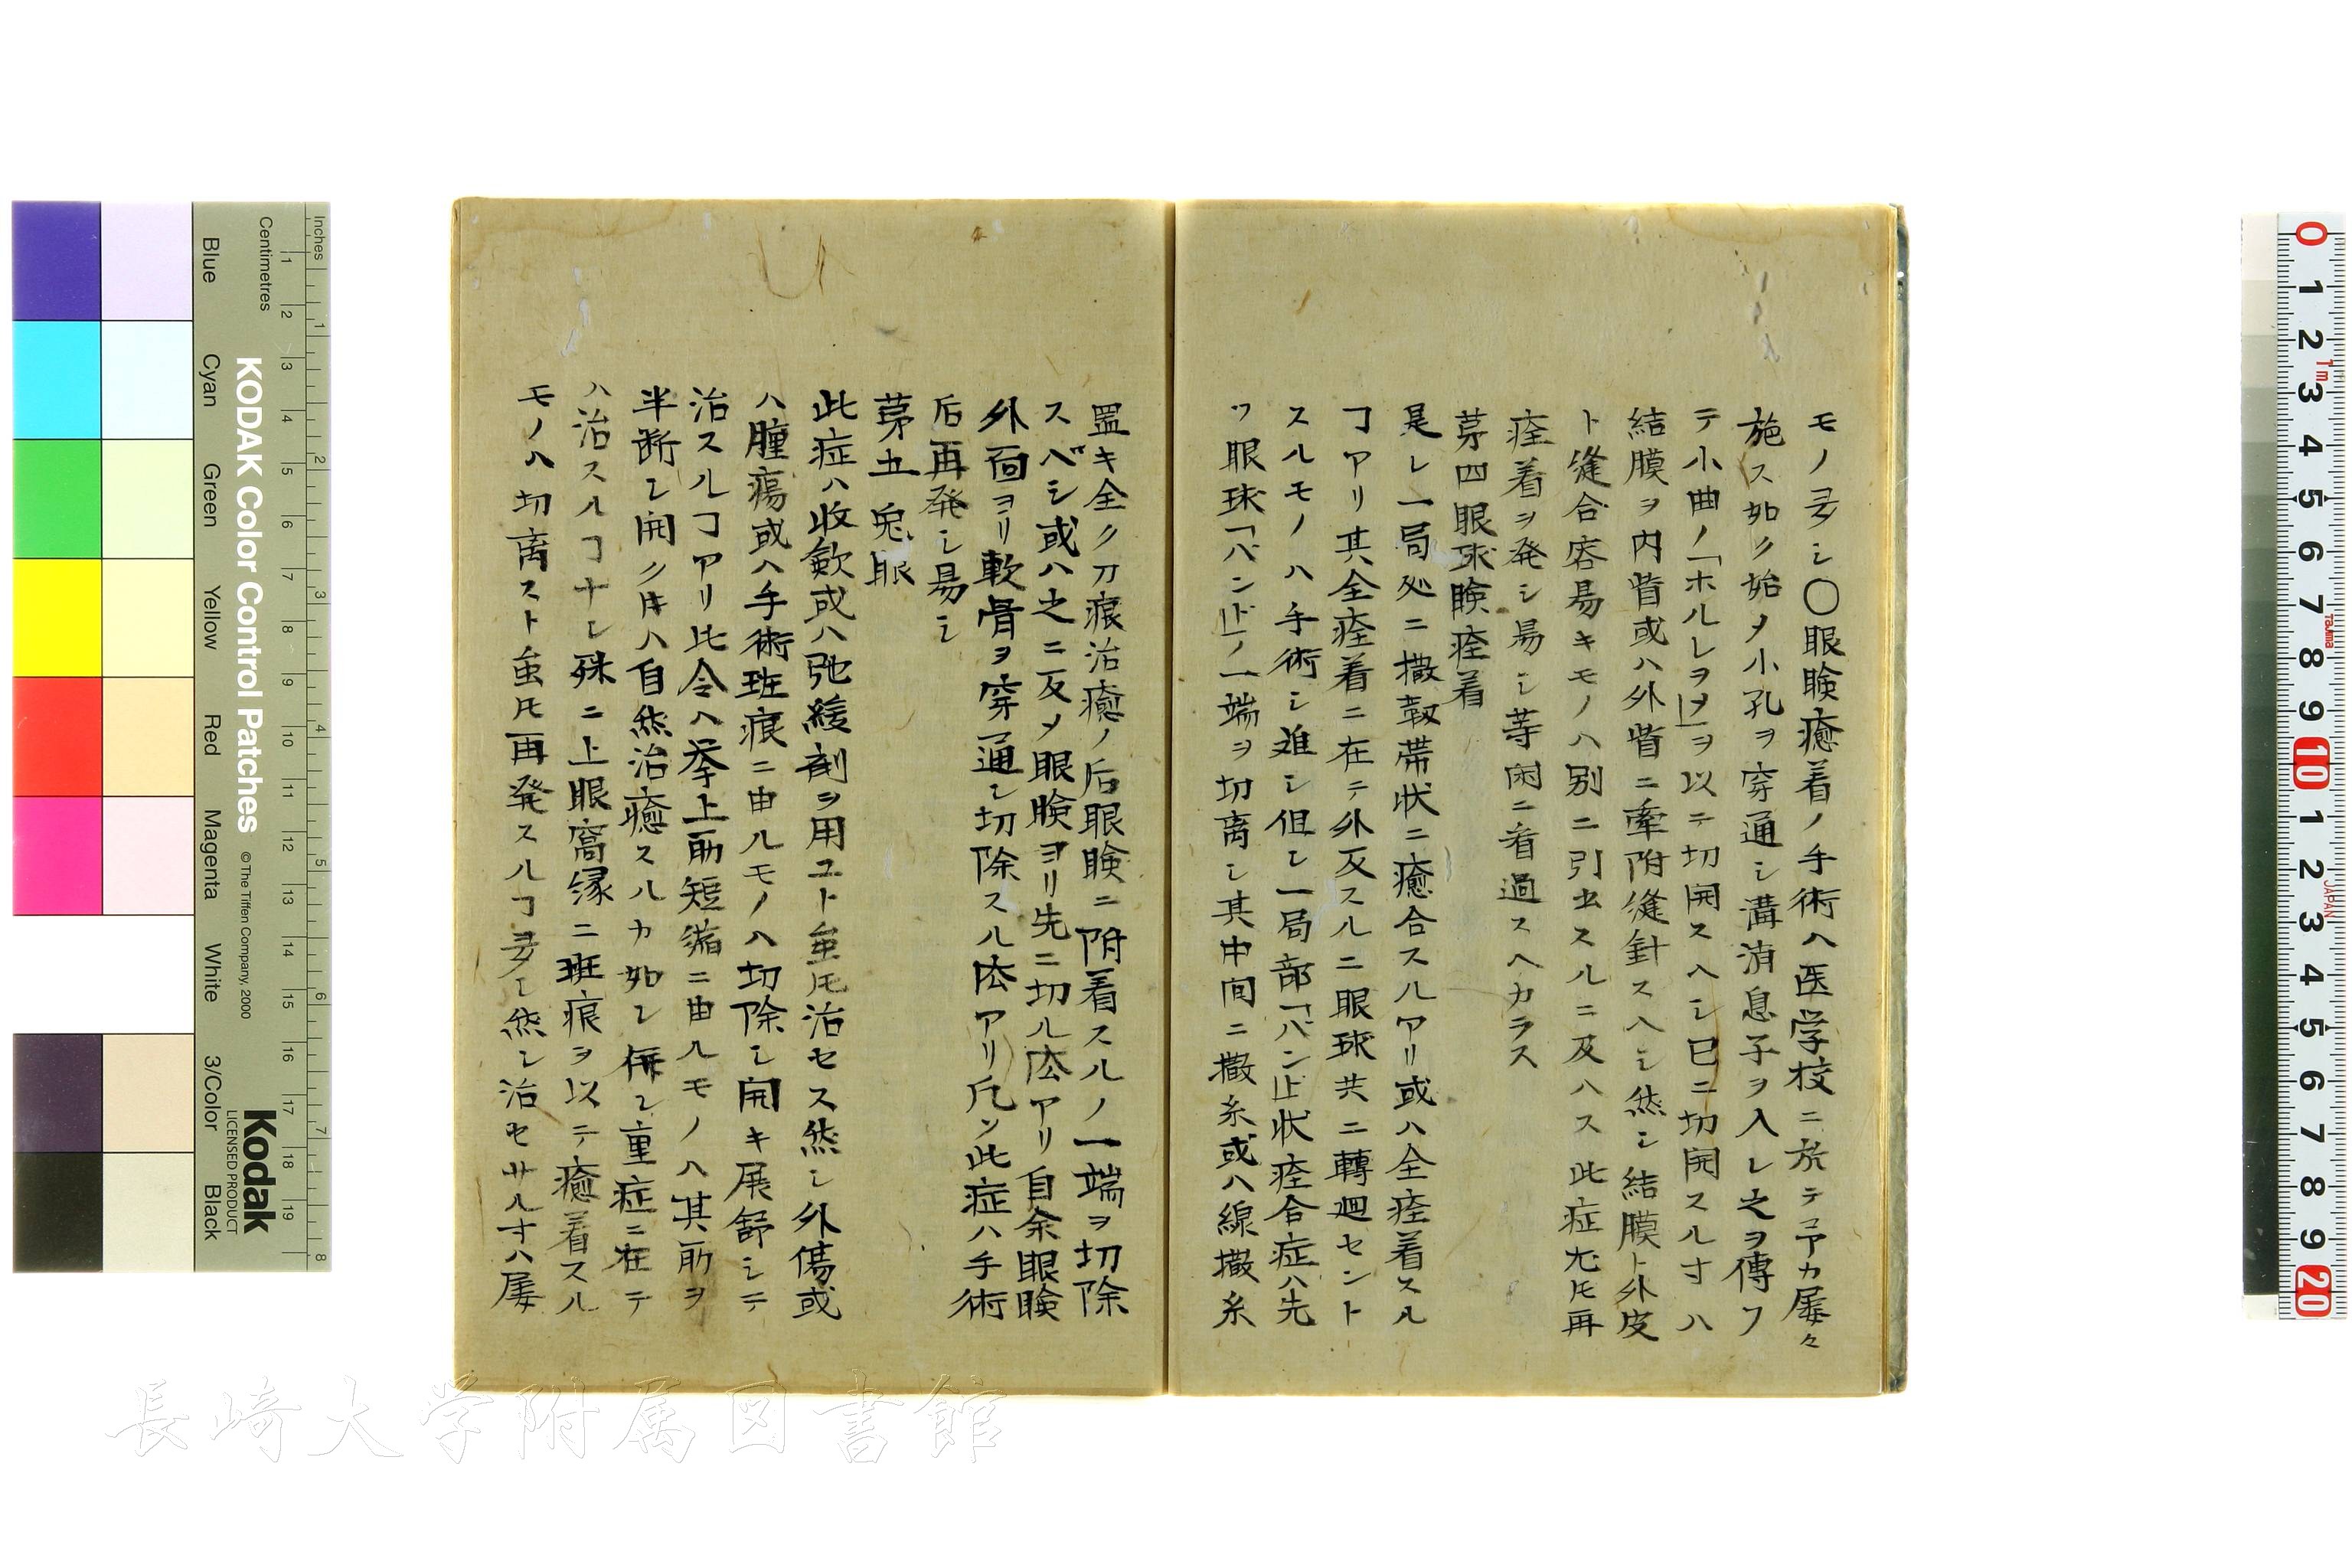 モノ多シ〇眼瞼癒着ノ手術ハ医学校ニ於テコアカ屡々
施ス如ク始メ小孔ヲ穿通シ溝消息子ヲ入レ之ヲ傳フ
テ小曲ノ「ホルレヲメ」ヲ以テ切開スヘシ已ニ切開スル寸ハ
結膜ヲ内眥或ハ外眥ニ牽附縫針スヘシ然シ結膜ト外皮
ト縫合容易キモノハ別ニ引出スルニ及ハス此症尤㕝再
痊着ヲ発シ易シ等閑ニ看過スヘカラス
茅四眼球瞼痊着
是レ一局処ニ撒靱帯状ニ癒合スルアリ或ハ全痊着スル
ヿアリ其全痊着ニ在テ外反スルニ眼球共ニ轉廻セント
スルモノハ手術シ難シ但シ一局部「バンド」状痊合症ハ先
ツ眼球「バンド」ノ一端ヲ切离シ其中间ニ撒糸或ハ線撒糸
置キ全ク刀痕治癒ノ后眼瞼ニ附着スルノ一端ヲ切除
スベシ或ハ之ニ反メ眼瞼ヨリ先ニ切ル㳒アリ自余眼瞼
外面ヨリ軟骨ヲ穿通シ切除スル㳒アリ凡ソ此症ハ手術
后再発シ易シ
茅五 兎眼
此症ハ收歛或ハ弛緩剤ヲ用ユト虽㕝治セス然シ外傷或
ハ腫瘍或ハ手術斑痕ニ由ルモノハ切除シ開キ展舒シテ
治スルヿアリ此令ヘ挙上筋短縮ニ由ルモノハ其筋ヲ
半断シ開ク㕝ハ自然治癒スルカ如シ併シ重症ニ在テ
ハ治スルヿナレ殊ニ上眼窩縁ニ斑痕ヲ以テ癒着スル
モノハ切离スト虽㕝再発スルヿ多シ然シ治セサル寸ハ屡
KODAK Color Control Patches
© The Tiffen Company, 2000
Kodak
LICENSED PRODUCT
Inches
Centimetres
Blue
Cyan
Green
Yellow
Red
Magenta
White
3/Color
Black
1 2 3 4 5 6 7 8 9 10 11 12 13 14 15 16 17 18 19
1 2 3 4 5 6 7 8
0 1 2 3 4 5 6 7 8 9 10 1 2 3 4 5 6 7 8 9 20
1m
JAPAN
長崎大学附属図書館